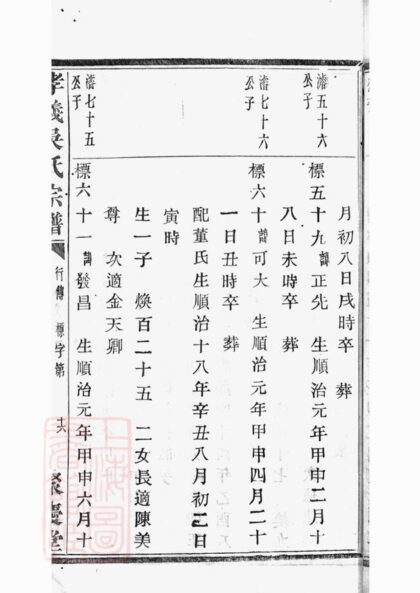 月初八日戌時卒 葬
濬五十六
公子
標五十九 諱正先 生順治元年甲申二月十
八日未時卒 葬
濬七十六
公子
標六十 諱可大 生順治元年甲申四月二十
一日丑時卒 葬
配董氏生順治十八年辛丑八月初二日
寅時
生一子 煥百二十五 二女長適陳美
尊 次適金天卿
濬七十五
公子
標六十一 諱發昌 生順治元年甲申六月十
孝義吳氏宗譜 行傳 標字第 十六 聚慶堂